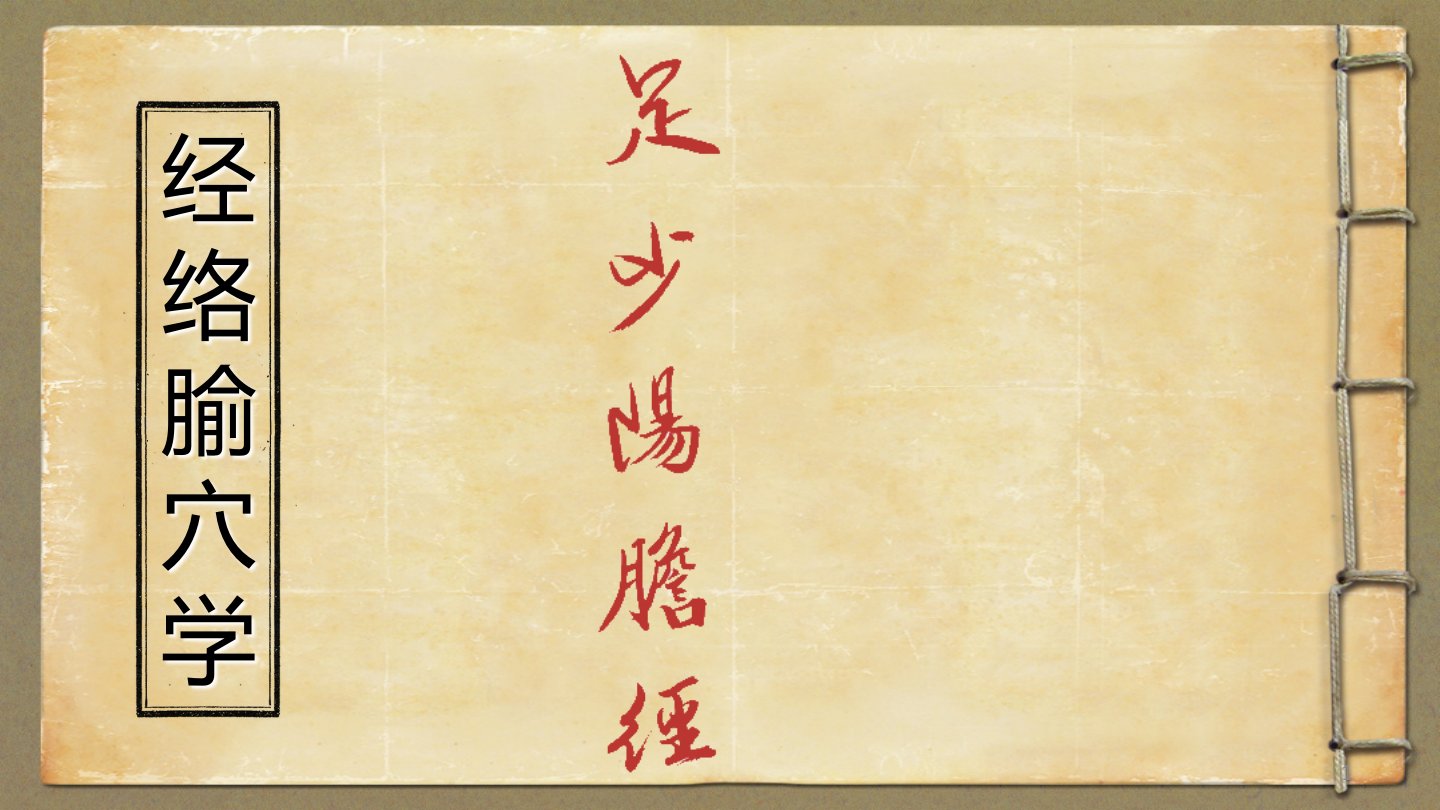 经络腧穴学
足少陽膽徑